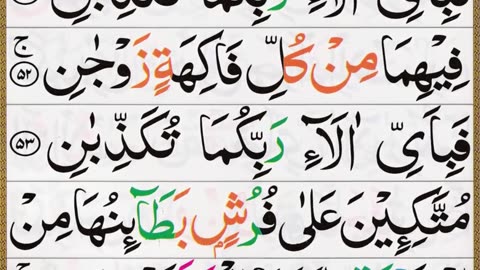 فَبِاَىِّ اٰلَآءِ رَبِّكُمَا تُكَذِّبٰنِ
فِيْهِمَا مِنْ كُلِّ فَاكِهَةٍ زَوْجٰنِ ۚ ﴿۵۲﴾
فَبِاَىِّ اٰلَآءِ رَبِّكُمَا تُكَذِّبٰنِ ﴿۵۳﴾
مُتَّكِـِٕيْنَ عَلٰى فُرُشٍۭ بَطَآئِنُهَا مِنْ